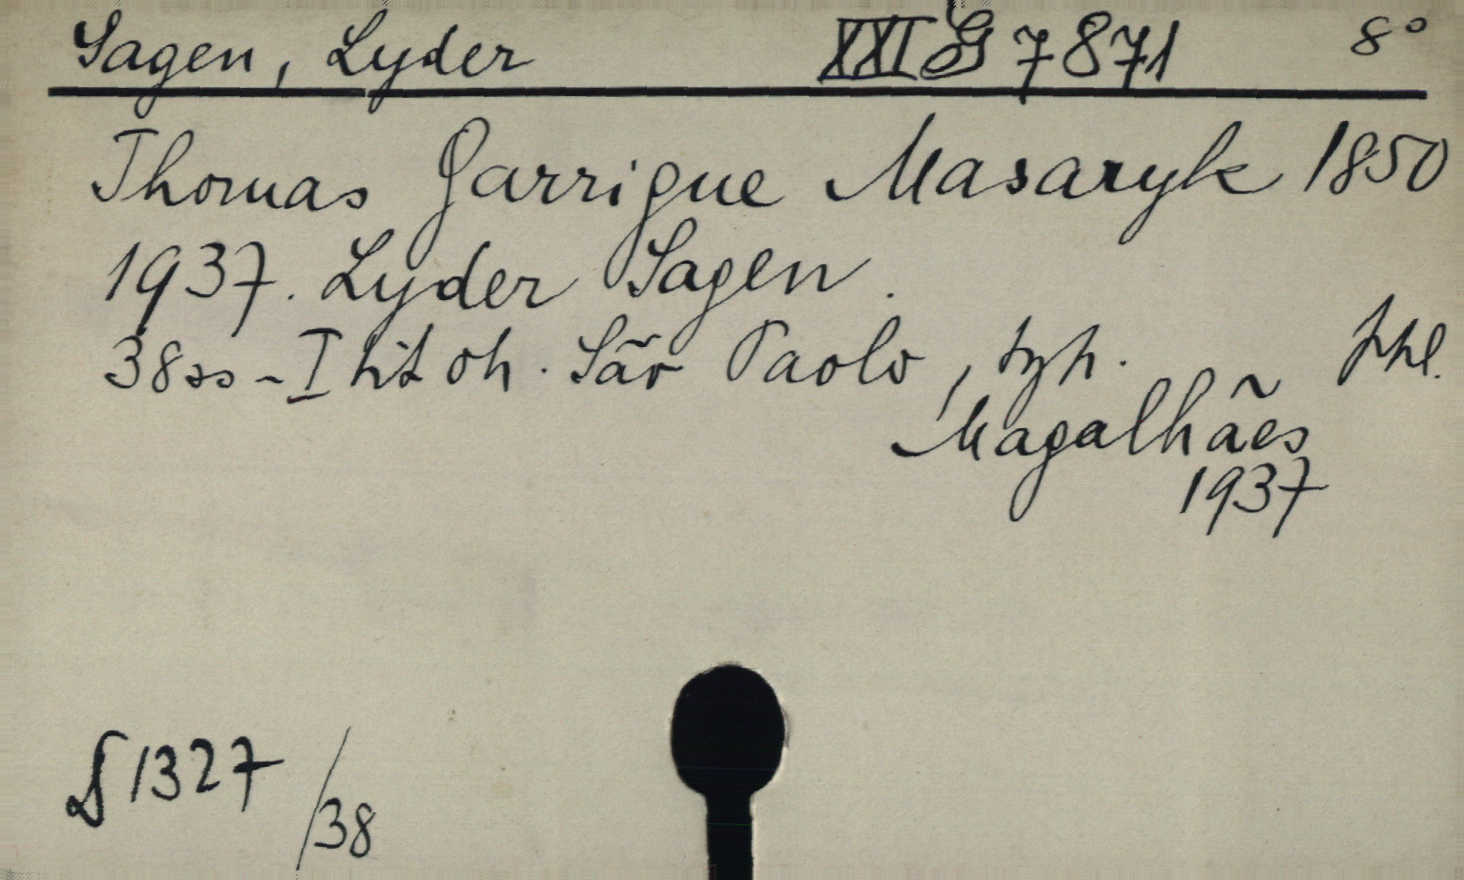 Sagen, Lyder XXI G 7871 8°
Thomas Garrigue Masaryk 1850
1937. Lyder Sagen.
38 ss - I tit ob. São Paolo, typ.
Magalhães
1937
1327/38